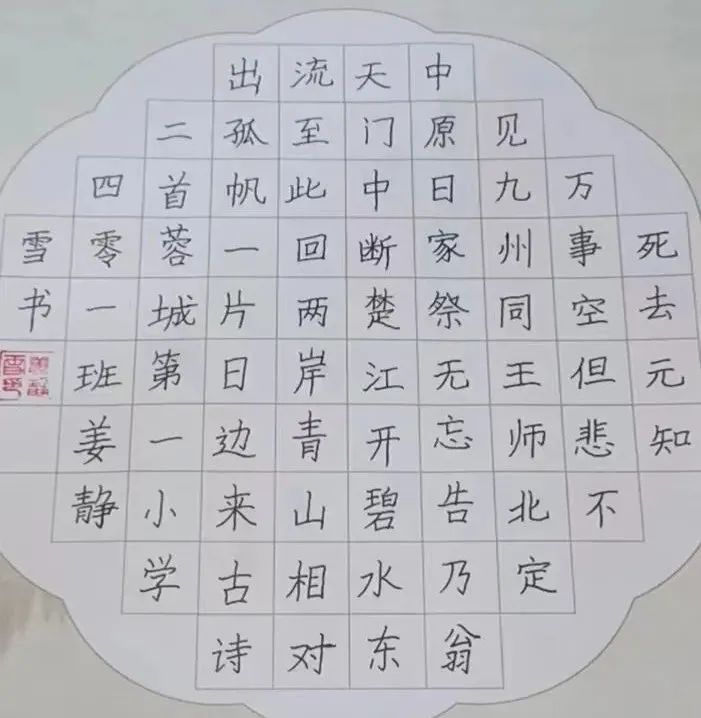 死去元知
万事空但悲不
见九州同王师北定
中原日家祭无忘告乃翁
天门中断楚江开碧水东
流至此回两岸青山相对
出孤帆一片日边来古诗
二首蓉城第一小学
四零一班姜静
雪书